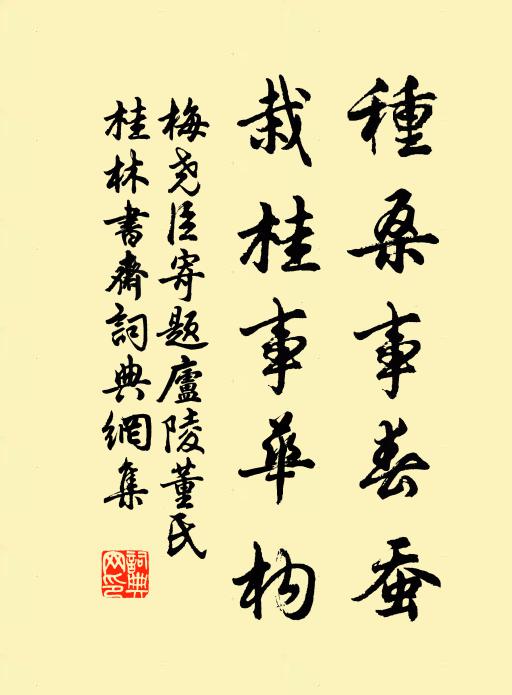 種桑事春蚕
栽桂事華构
梅尧臣寄題廬陵董氏
桂林書齋詞典網集
詞典
网印